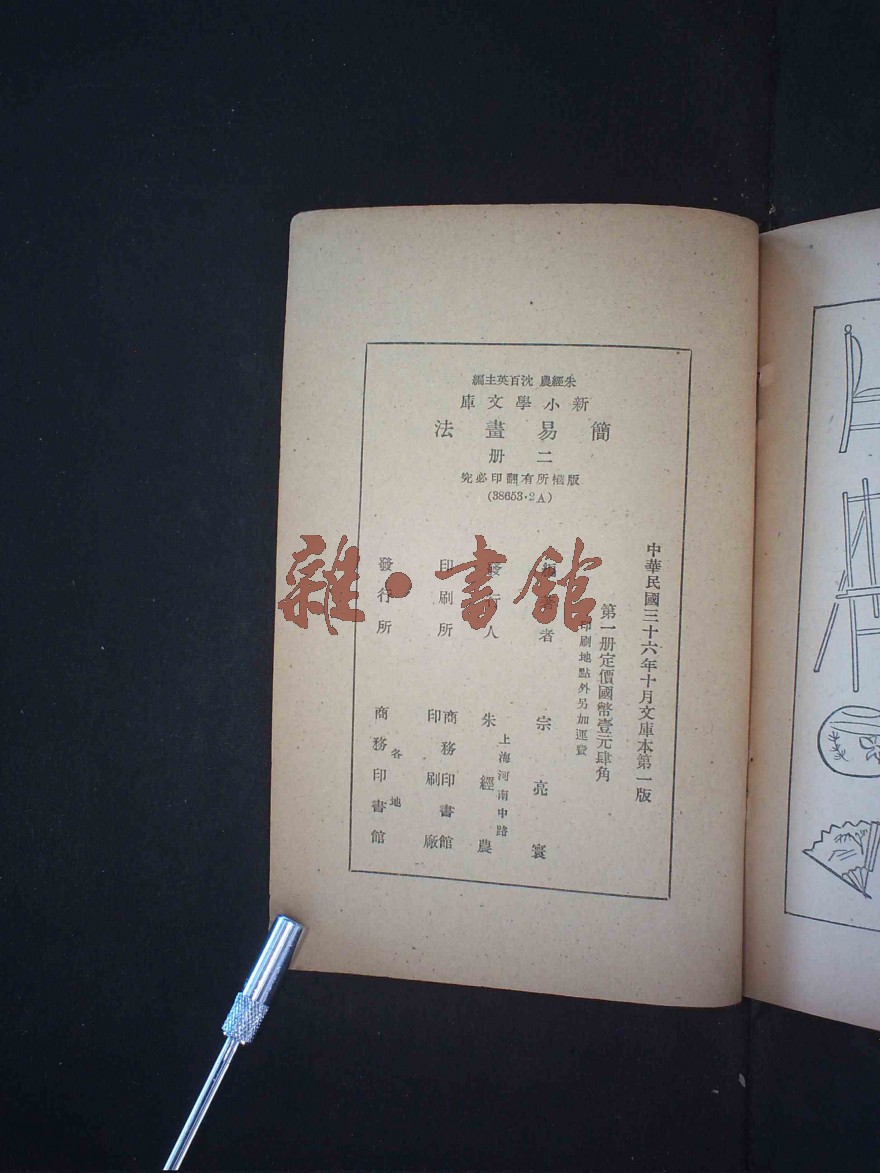 朱經農 沈百英主編
新小學文庫
簡易畫法
二册
版權所有翻印必究
(38653·2A)
中華民國三十六年十月文庫本第一版
第一册定價國幣壹元肆角
印刷地點外另加運費
編著者 宗亮寰
發行人 朱經農
上海河南中路
印刷所 商務印書館
印刷廠
發行所 各地
商務印書館
雜·書館